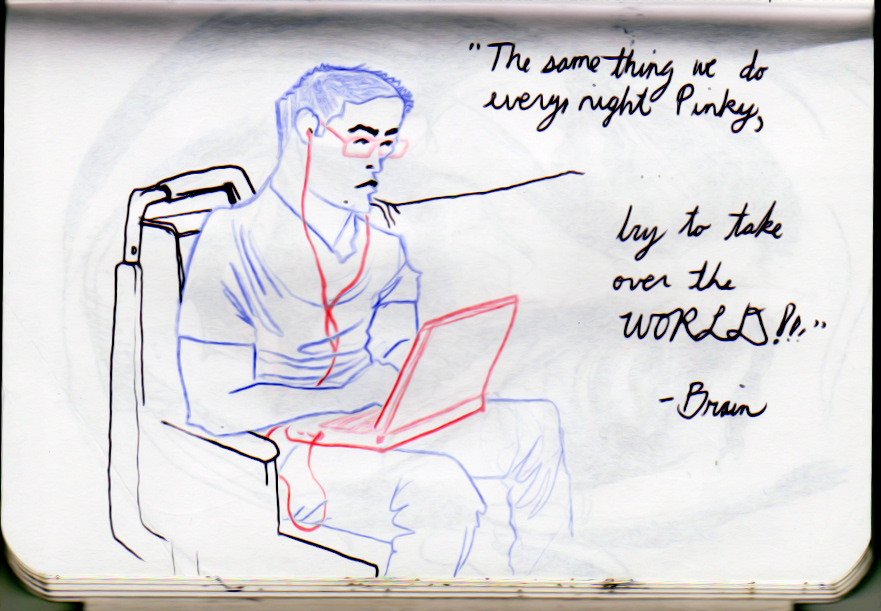 "The same thing we do
every night Pinky,
try to take
over the
WORLD!!!"
-Brain